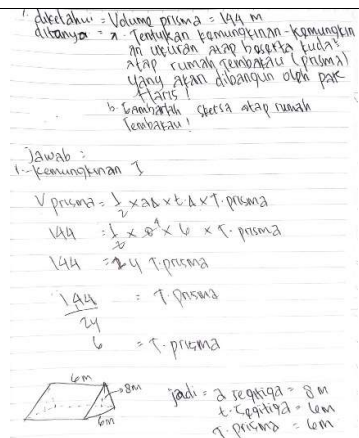 1. diketahui = Volume prisma = 144 m
ditanya = a. Tentukan kemungkinan-kemungkin
an ukuran atap beserta kuda²
atap rumah Tembakau (prisma)
yang akan dibangun oleh pak
Haris!
b. Gambarlah sketsa atap rumah
Tembakau!
Jawab :
1. Kemungkinan I
V prisma = 1/2 x aΔ x t.Δ x T. prisma
144 = 1/2 x 8⁴ x 6 x T. prisma
144 = 24 T. prisma
144/24 = T. prisma
6 = T. prisma
6m
8m
6m
jadi = a segitiga = 8 m
t. segitiga = 6m
T. prisma = 6m